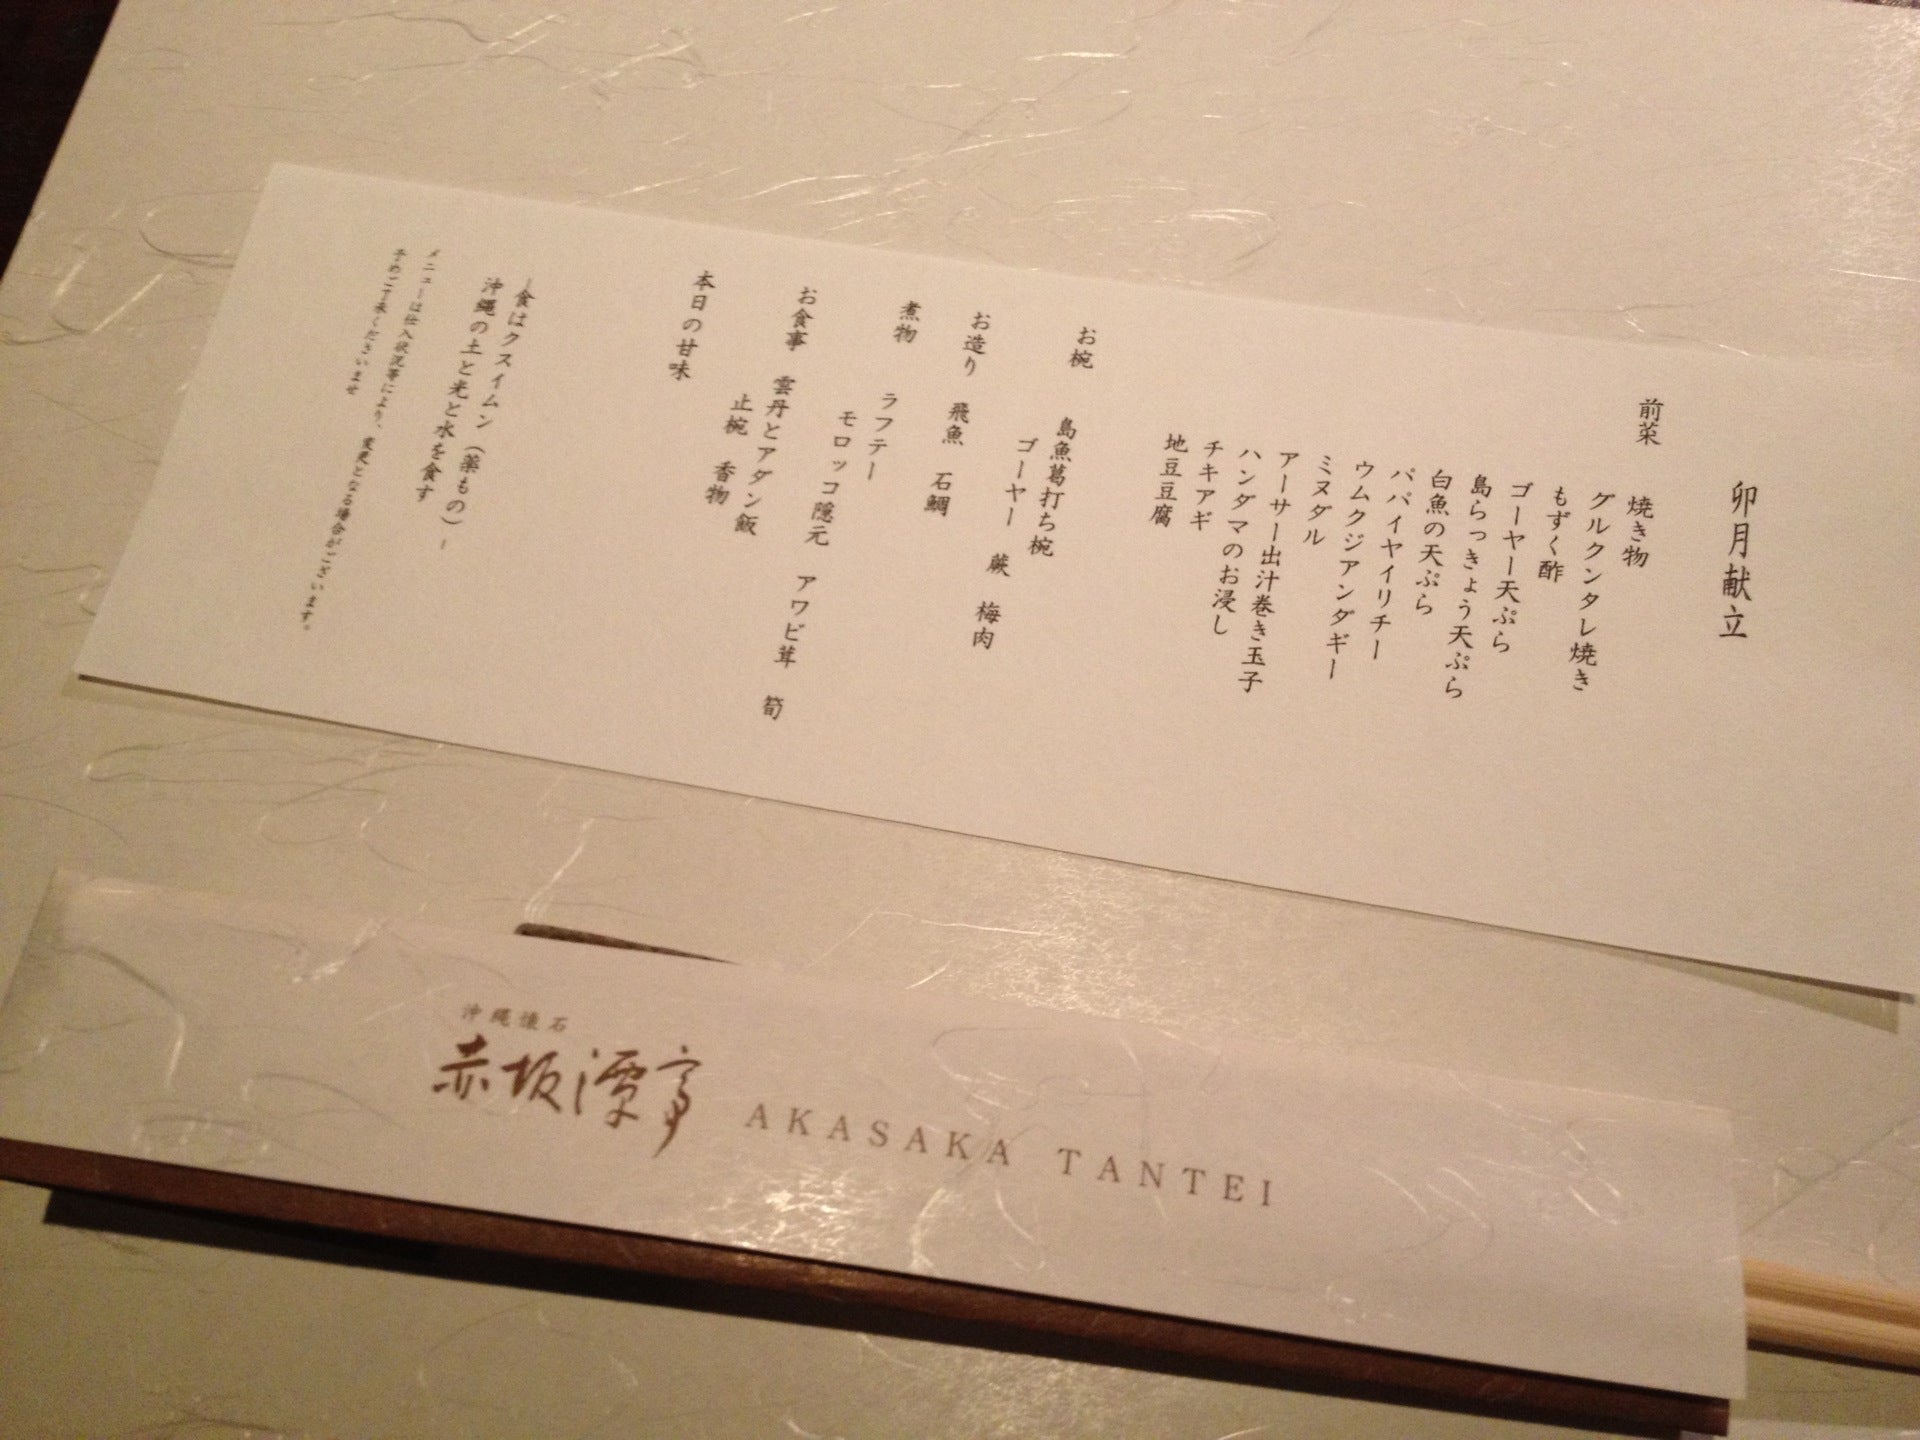 卯月献立
前菜
焼き物
グルクンタレ焼き
もずく酢
ゴーヤー天ぷら
島らっきょう天ぷら
白魚の天ぷら
パパイヤイリチー
ウムクジアンダギー
ミヌダル
アーサー出汁巻き玉子
ハンダマのお浸し
チキアギ
地豆豆腐
お椀 島魚葛打ち椀
ゴーヤー 蕨 梅肉
お造り 飛魚 石鯛
煮物 ラフテー
モロッコ隠元 アワビ茸 筍
お食事 雲丹とアダン飯
止椀 香物
本日の甘味
–食はクスイムン(薬もの)–
沖縄の土と光と水を食す
メニューは仕入状況等により、変更となる場合がございます。
予めご了承くださいませ
沖縄懐石
赤坂潭亭 AKASAKA TANTEI